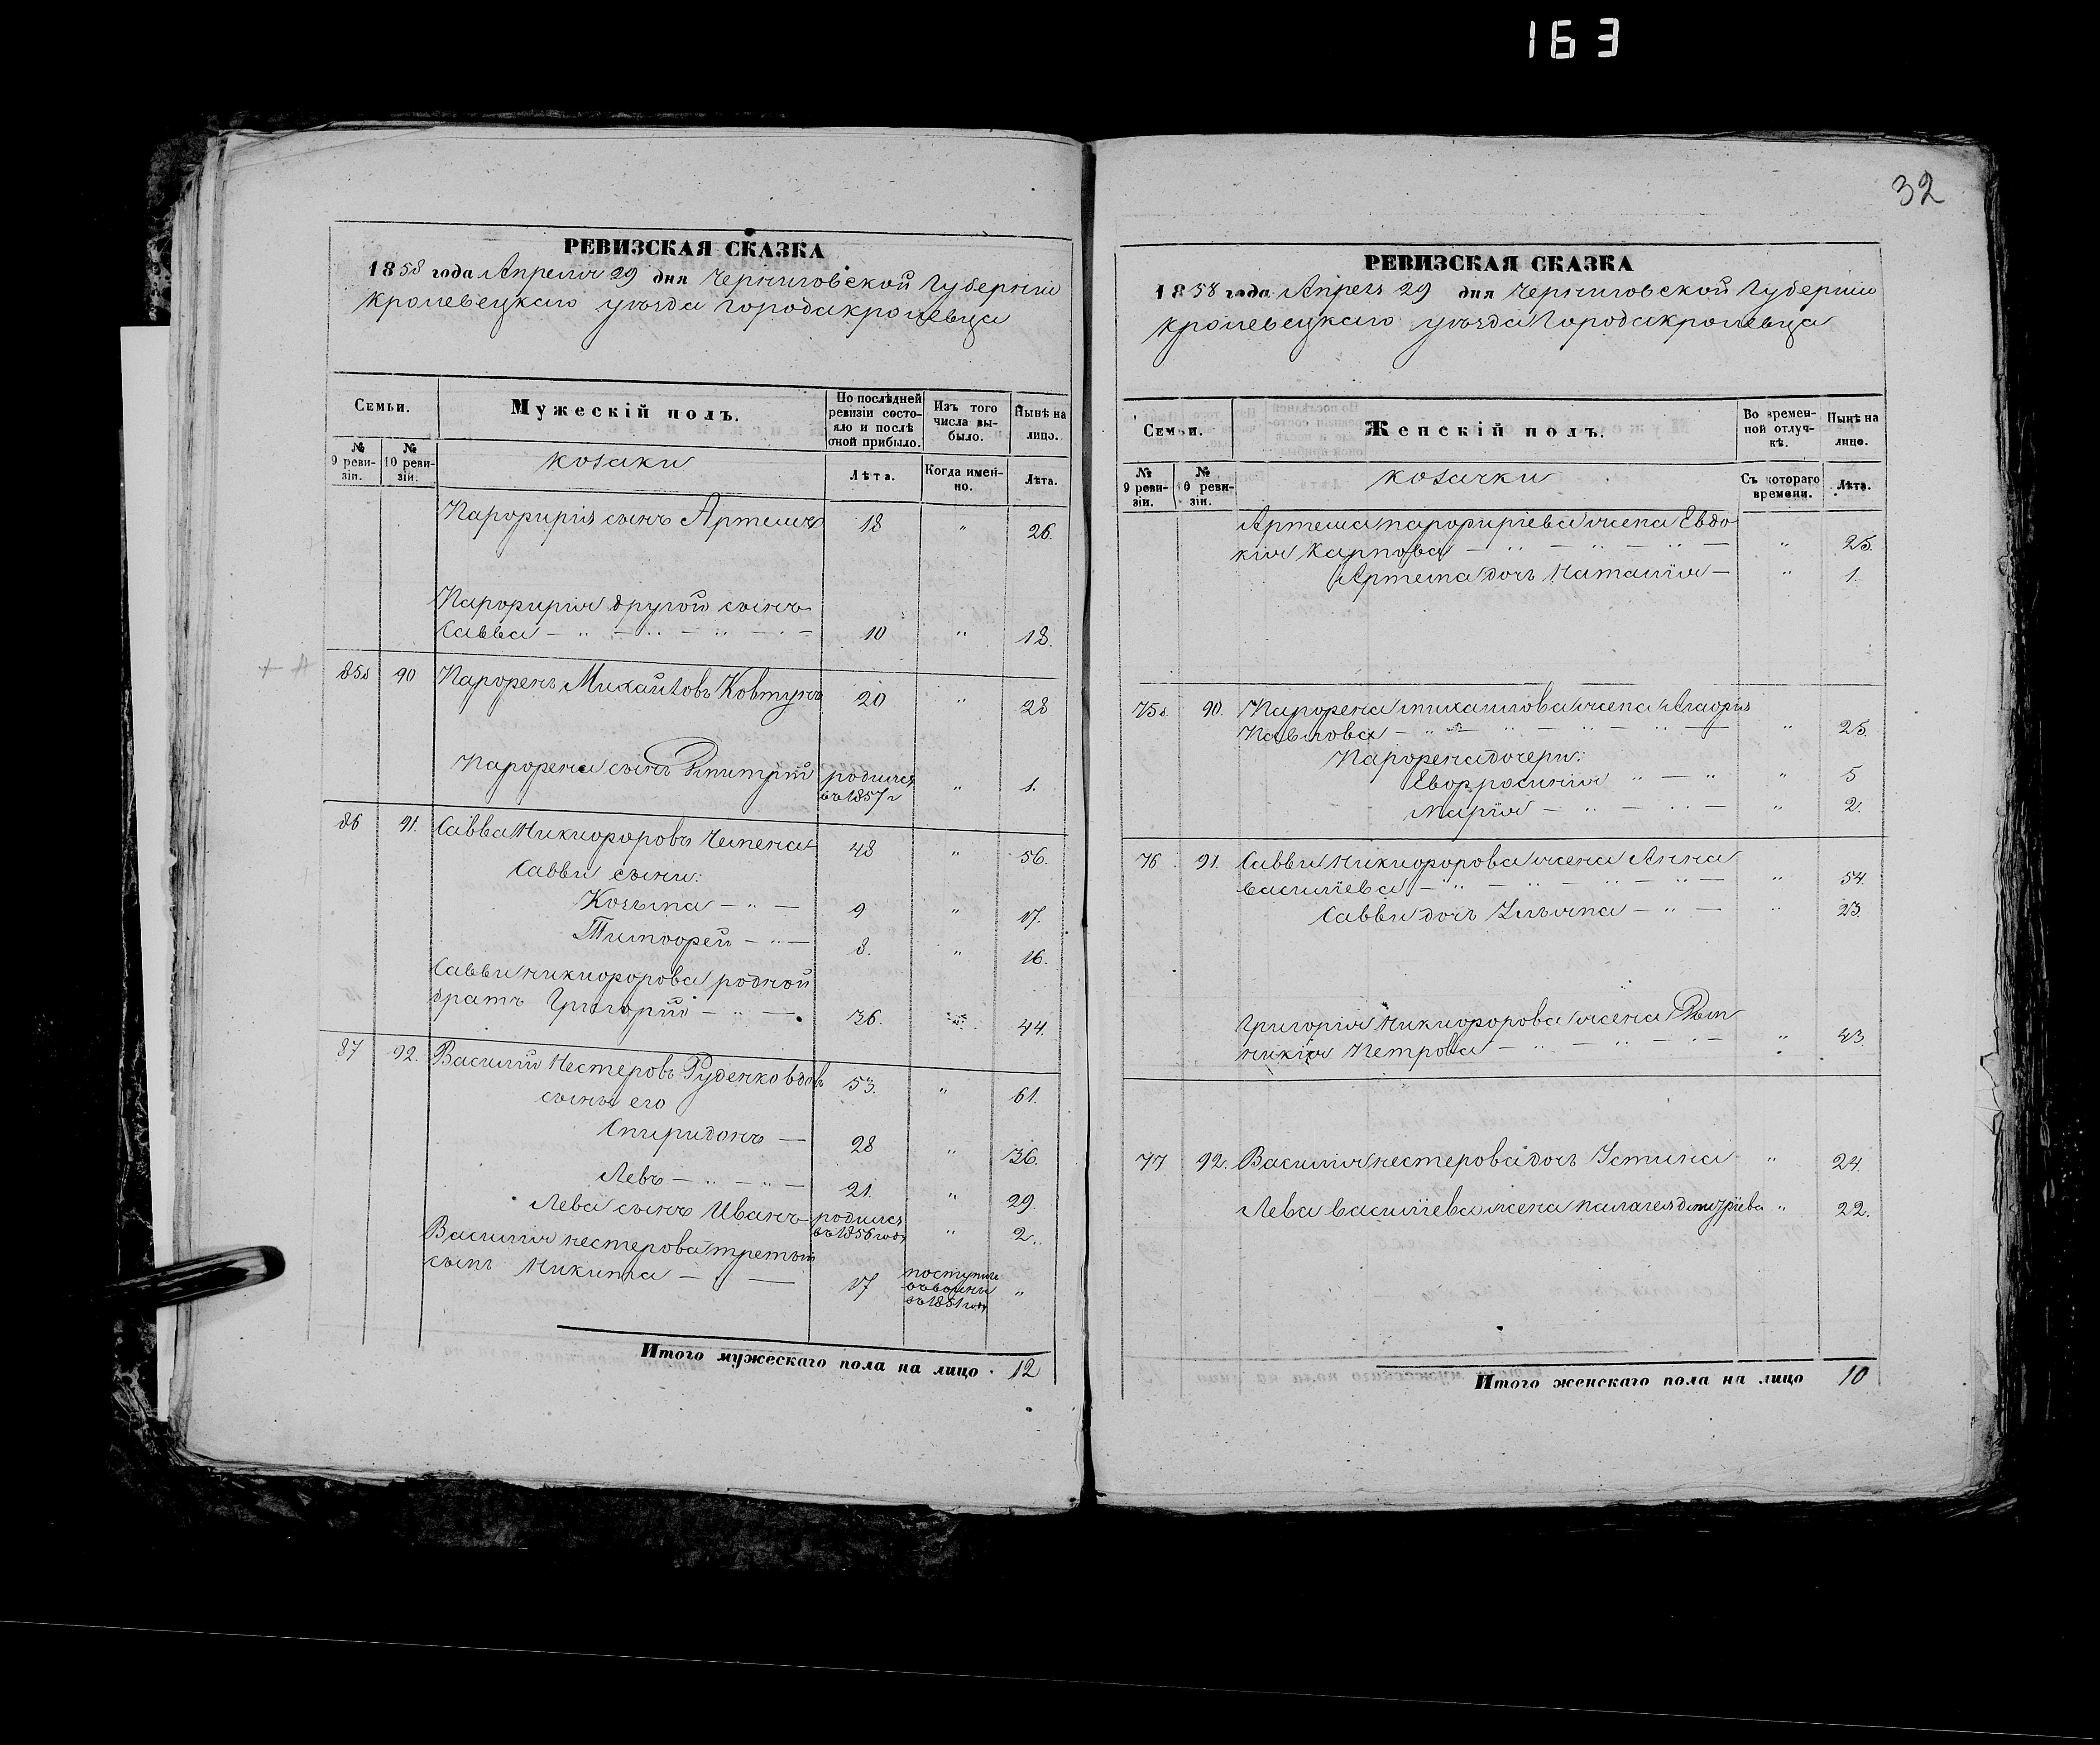 163
32
РЕВИЗСКАЯ СКАЗКА
1858 года Апреля 29 дня Черниговской Губерніи
Кролевецкаго уѣзда Города Кролевца
Семьи.
Мужескій полъ.
По послѣдней ревизіи состояло и послѣ оной прибыло.
Изъ того числа выбыло.
Нынѣ на лицо.
№ 9 ревизіи.
№ 10 ревизіи.
козаки
Лѣта.
Когда именно.
Лѣта.
Парфирія сынъ Артемъ 18 " 26.
Парфирія другой сынъ
Савва — " — " — " — 10 " 18.
85 90 Парфенъ Михайловъ Ковтунъ 20 " 28
Парфена сынъ Дмитрій родился въ 1857 г " 1.
86 91. Савва Никифоровъ 48 " 56.
Саввы сыны:
Козьма — " — 9 " 17.
Тимофей — " — 8. " 16.
Саввы Никифорова родной
братъ Григорій — " — 36. " 44.
87 92. Василій Нестеровъ Руденко вдовъ 53. " 61.
сыны его
Спиридонъ — 28 " 36.
Левъ — " — " — 21. " 29.
Лева сынъ Иванъ родился въ 1856 году " 2.
Василія Нестерова третій
сынъ Никита — " — 17 въ 1851 году "
Итого мужескаго пола на лицо 12
РЕВИЗСКАЯ СКАЗКА
1858 года Апреля 29 дня Черниговской Губерніи
Кролевецкаго уѣзда Города Кролевца
Семьи.
Женскій полъ.
Во временной отлучкѣ.
Нынѣ на лицо.
№ 9 ревизіи.
№ 10 ревизіи.
козачки
Съ котораго времени.
Лѣта.
Артема Парфиріева жена Евдо
кія Карпова — " — " — " — " 25.
Артема дочь Наталія — " 1.
75 90. Парфена Михайлова жена
Павлова — " — " — " — " — " 25.
Парфена дочери:
Евфросинія " — " " 5
Марія — " — " — " 2.
76 91. Саввы Никифорова жена Анна
Василіева — " — " — " — " — " 54.
Саввы дочь Ульяна — " — " 23.
Григорія Никифорова жена Дом
никія Петрова — " — " — " — " 43.
77 92. Василія Нестерова дочь Устина " 24.
Лева Василіева жена Палагея Дмитріева " 22.
Итого женскаго пола на лицо 10